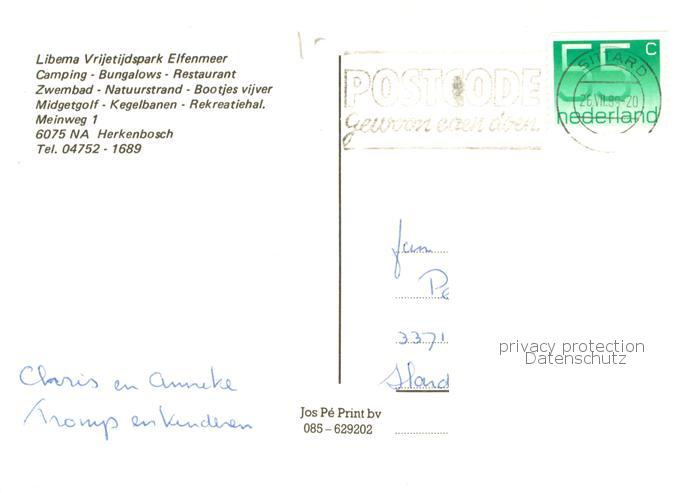 Libema Vrijetijdspark Elfenmeer
Camping - Bungalows - Restaurant
Zwembad - Natuurstrand - Bootjes vijver
Midgetgolf - Kegelbanen - Rekreatiehal.
Meinweg 1
6075 NA Herkenbosch
Tel. 04752 - 1689
POSTCODE
gewoon even doen.
SITTARD
26.VII.89-20
55 c
nederland
Fam
Pe
3371
Hard
privacy protection
Datenschutz
Chris en Anneke
Tromp en kinderen
Jos Pé Print bv
085-629202